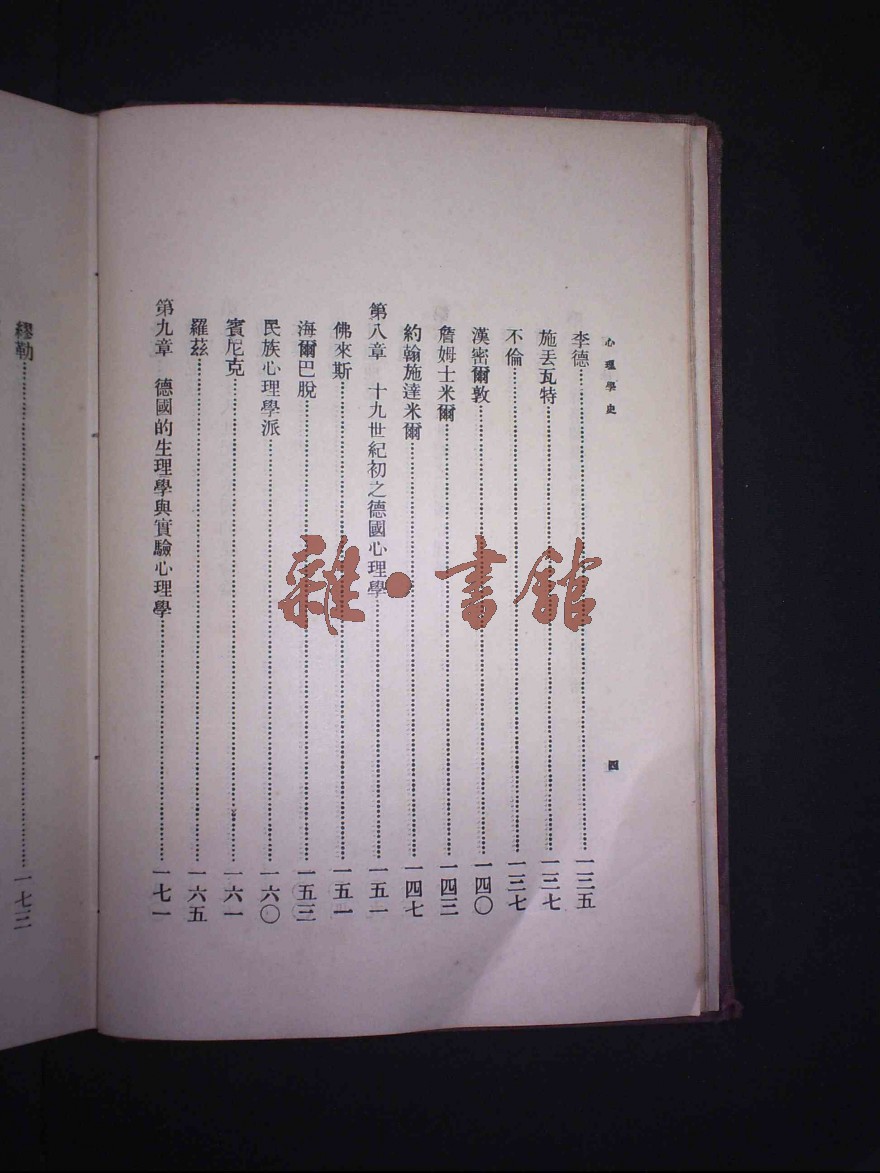 心理學史
四
李德……一三五
施丟瓦特……一三七
不倫……一三七
漢密爾敦……一四〇
詹姆士米爾……一四三
約翰施達米爾……一四七
第八章　十九世紀初之德國心理學……一五一
佛來斯……一五一
海爾巴脫……一五三
民族心理學派……一六〇
賓尼克……一六一
羅茲……一六五
第九章　德國的生理學與實驗心理學……一七一
繆勒……一七三
雜·書館